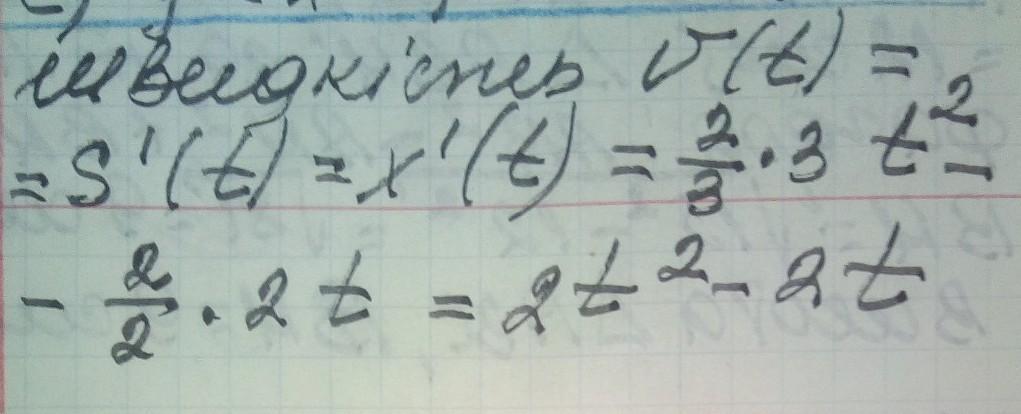 швидкість v(t) =
= S'(t) = x'(t) = 2/3 · 3 t² -
- 2/2 · 2 t = 2t² - 2t